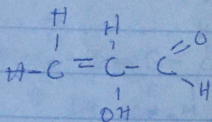 H H
H-C=C-C=O
OH H